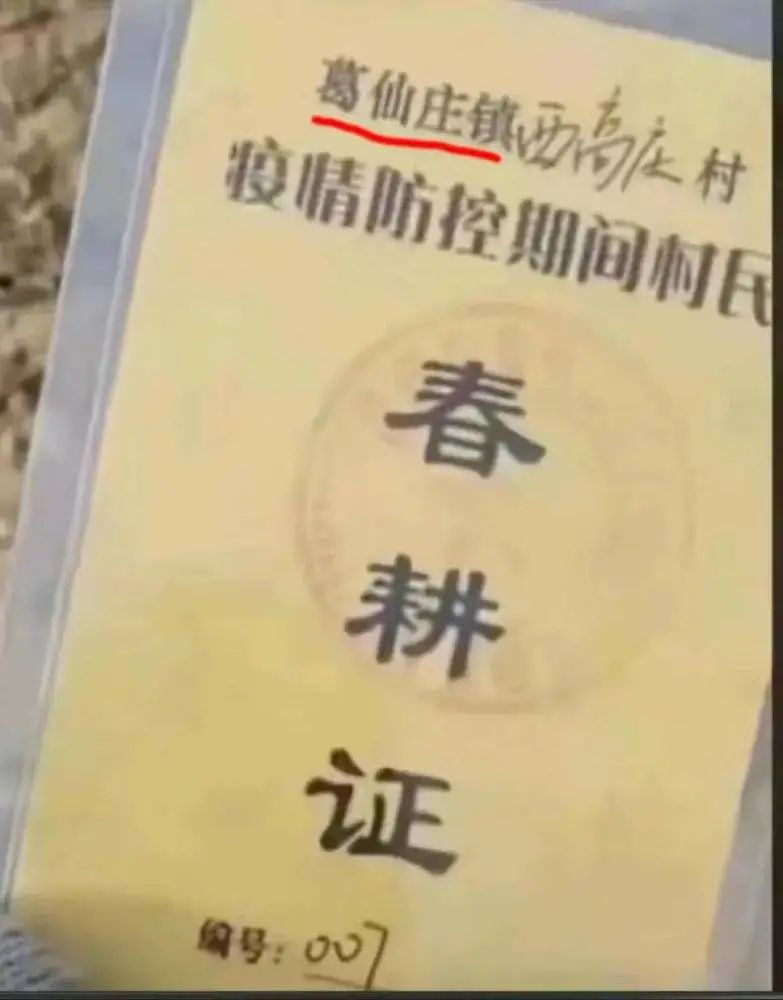 葛仙庄镇西高庄村
疫情防控期间村民
春
耕
证
编号:007